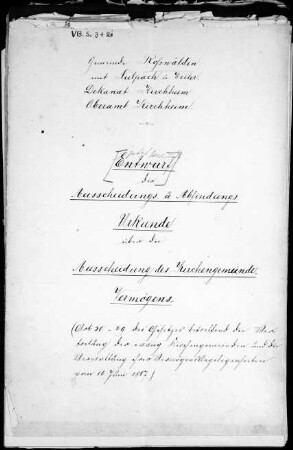 VB. S. 3 + 2i
Gemeinde Roßwälden
mit Sulpach u. Weiler.
Dekanat Kirchheim
Oberamt Kirchheim.
Entwurf
der
Ausscheidungs u. Abfindungs
Urkunde
über die
Ausscheidung des Kirchengemeinde
Vermögens.
(Art. 20 - des Gesetzes betreffend die Ver
tretung der evang. Kirchengemeinden und die
Verwaltung ihrer Vermögensangelegenheiten
vom 14 Juni 1887)